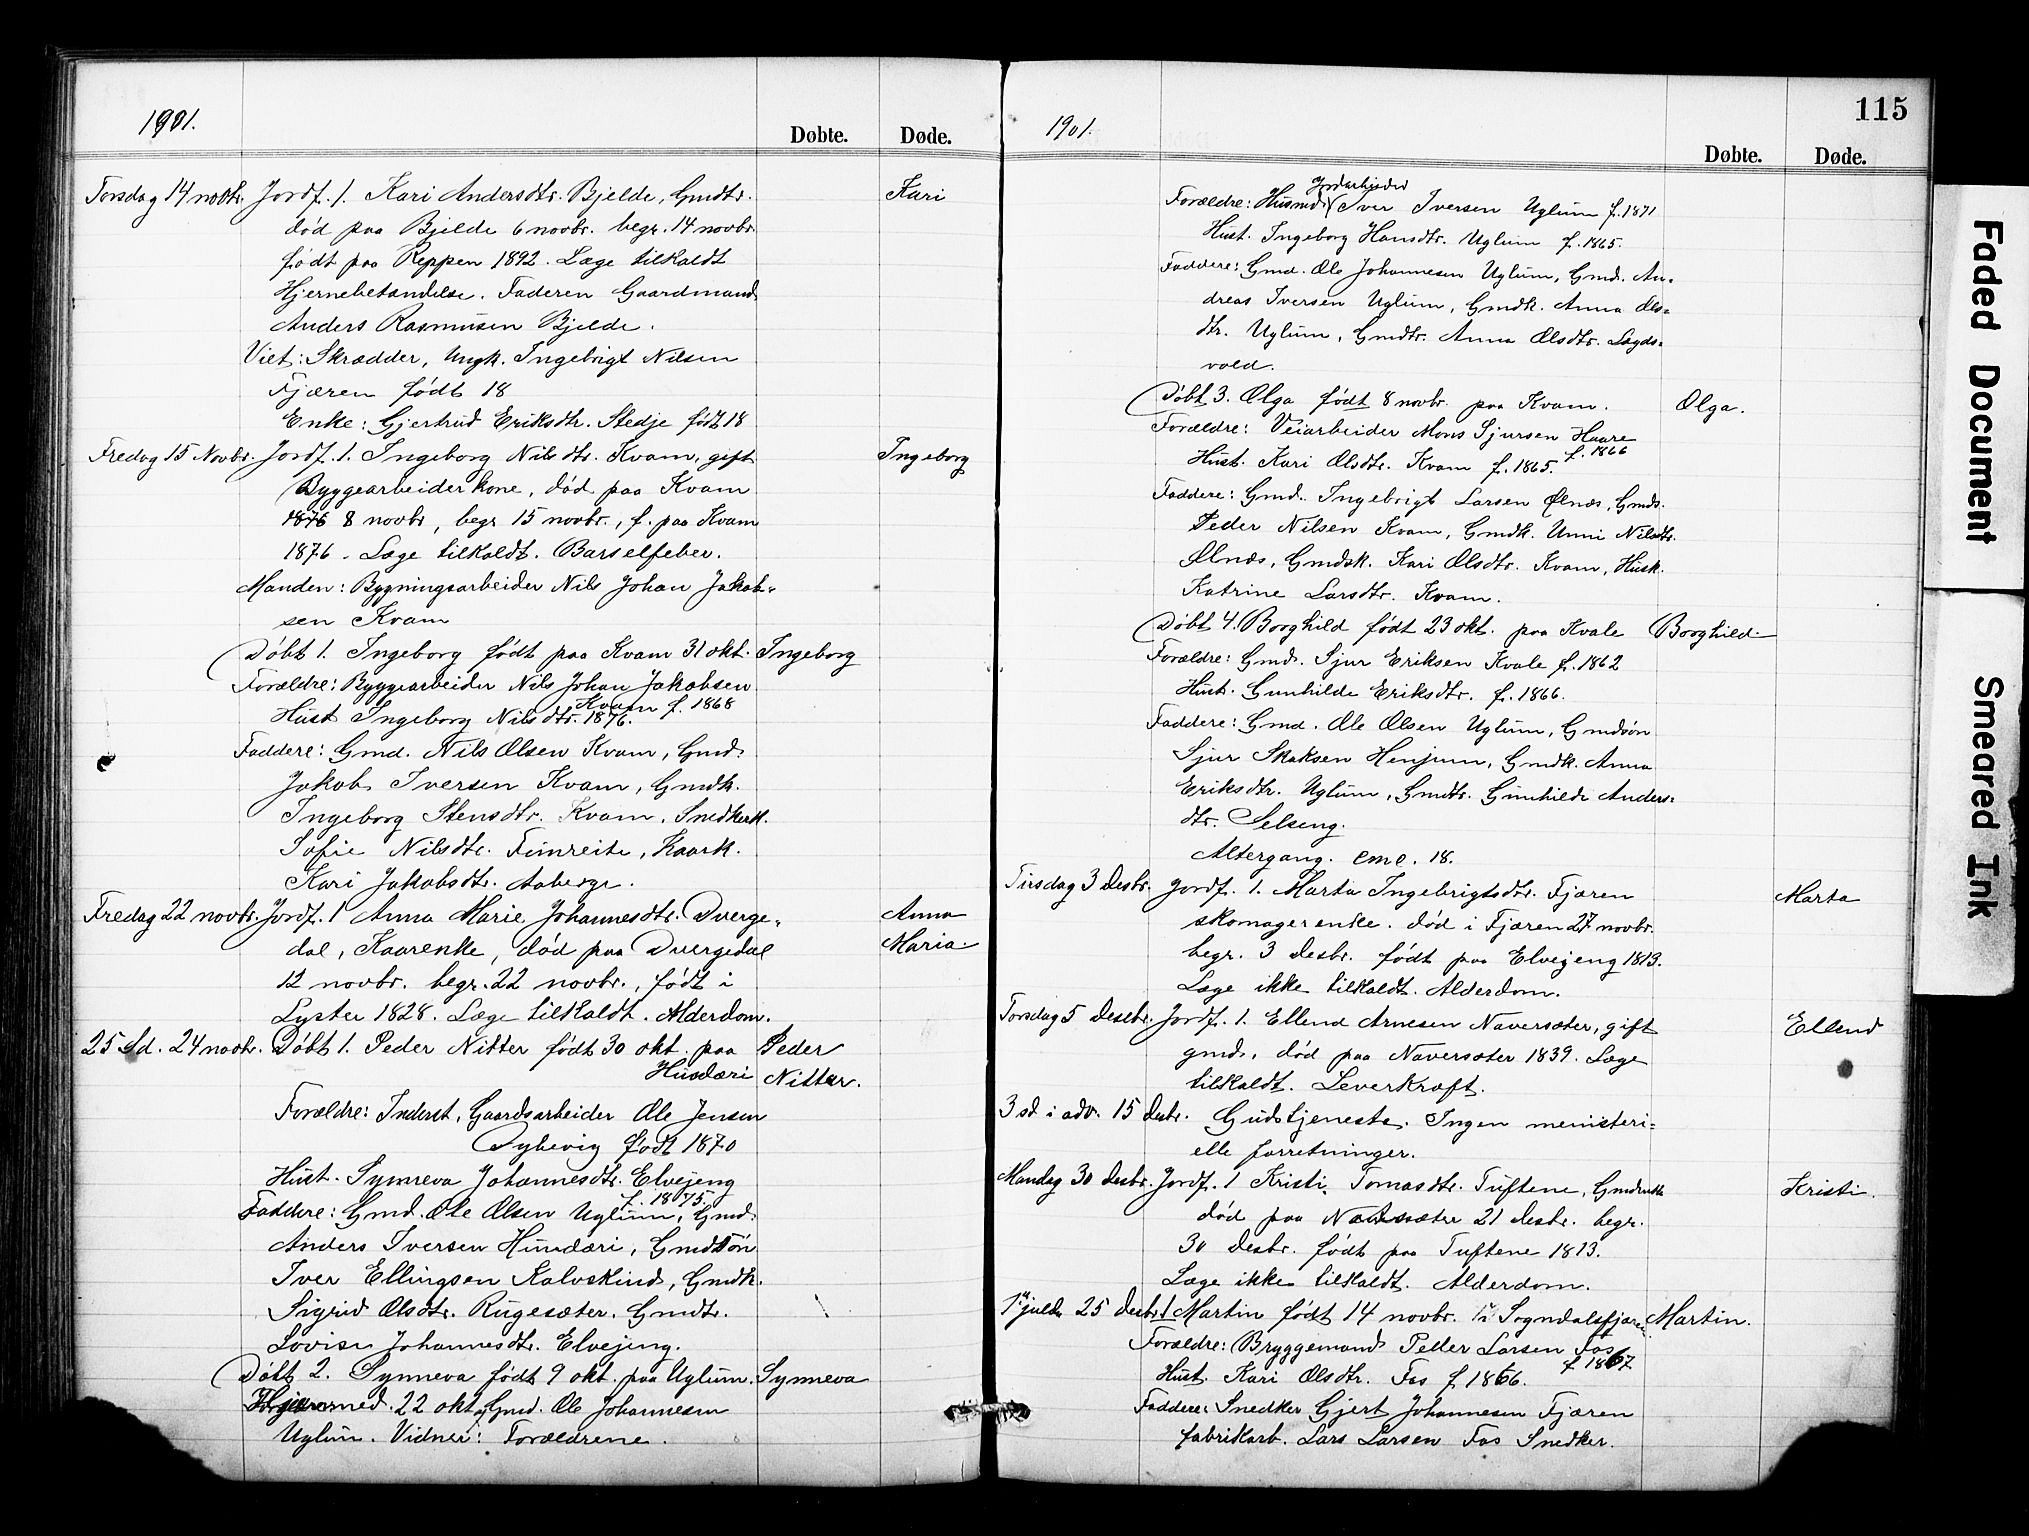 1901.
Døbte.
Døde.
Torsdag 14 novbr. Jordf. 1. Kari Andersdtr. Bjelde, Gmdtr. Kari
død paa Bjelde 6 novbr. begr. 14 novbr.
født paa Reppen 1892. Læge tilkaldt
Hjernebetændelse. Faderen Gaardmand
Anders Rasmusen Bjelde.
Viet: Skrædder, Ungk. Ingebrigt Nilsen
Fjæren født 18
Enke: Gjertrud Eriksdtr. Stedje født 18
Fredag 15 Novbr. Jordf. 1. Ingeborg Nilsdtr. Kvam, gift Ingeborg
Byggearbeiderkone, død paa Kvam
1876 8 novbr, begr 15 novbr., f. paa Kvam
1876. Læge tilkaldt. Barselfeber.
Manden: Bygningsarbeider Nils Johan Jakob-
sen Kvam
Døbt 1. Ingeborg født paa Kvam 31 okt. Ingeborg
Forældre: Byggearbeider Nils Johan Jakobsen
Kvam f. 1868
Hust Ingeborg Nilsdtr. 1876.
Faddere: Gmd. Nils Olsen Kvam, Gmd.
Jakob Iversen Kvam, Gmdk.
Ingeborg Stensdtr. Kvam, Snedkerk.
Sofie Nilsdtr. Fimreite, Kaark.
Kari Jakobsdtr. Aaberge.
Fredag 22 novbr. Jordf. 1 Anna Marie Johannesdtr. Dverge- Anna
dal, Kaarenke, død paa Dvergedal Maria.
12 novbr. begr. 22 novbr., født i
Lyster 1828. Læge tilkaldt. Alderdom.
25 Sd. 24 novbr. Døbt 1. Peder Nitter født 30 okt. paa Peder
Hundæri Nitter.
Forældre: Inderst, Gaardsarbeider Ole Jensen
Dybevig født 1870
Hust. Synneva Johannesdtr. Elvejeng
f. 1875
Faddere: Gmd. Ole Olsen Uglum, Gmd.
Anders Iversen Hundæri, Gmdsøn
Iver Ellingsen Kalvskind, Gmdk.
Sigrid Olsdtr. Rugesæter. Gmdtr.
Lovise Johannesdtr. Elvejeng.
Døbt 2. Synneva født 9 okt. paa Uglum. Synneva
Hjemmed. 22 okt af Gmd. Ole Johannesen
Uglum. Vidner: Forældrene.
1901.
115
Døbte.
Døde.
Jordarbeider
Forældre: Husmd. Iver Iversen Uglum f. 1871
Hust. Ingeborg Hansdtr. Uglum f. 1865.
Faddere: Gmd. Ole Johannesen Uglum, Gmd. An-
dreas Iversen Uglum, Gmdk. Anna Ols-
dtr. Uglum, Gmdtr. Anna Olsdtr. Lægds-
vold.
Døbt 3. Olga født 8 novbr. paa Kvam. Olga.
Forældre: Veiarbeider Mons Sjursen Haare
f. 1866
Hust. Kari Olsdtr. Kvam f. 1865.
Faddere: Gmd. Ingebrigt Larsen Ølnæs, Gmds.
Peder Nilsen Kvam, Gmdk. Unni Nilsdtr.
Ølnæs, Gmdsk. Kari Olsdtr. Kvam, Husk.
Katrine Larsdtr. Kvam.
Døbt 4. Borghild født 23 okt. paa Kvale Borghild.
Forældre: Gmd. Sjur Eriksen Kvale f. 1862
Hust. Gunhilde Eriksdtr. f. 1866.
Faddere: Gmd. Ole Olsen Uglum, Gmdsøn
Sjur Skaksen Henjum, Gmdk. Anna
Eriksdtr. Uglum, Gmdtr. Gunhilde Anders-
dtr. Selseng.
Altergang. 18.
Tirsdag 3 desbr. Jordf. 1. Marta Ingebrigtsdtr. Fjæren Marta
skomagerenke. død i Fjæren 27 novbr.
begr. 3 desbr. født paa Elvejeng 1813.
Læge ikke tilkaldt. Alderdom.
Torsdag 5 desbr. Jordf. 1. Ellend Arnesen Navarsæter, gift Ellend
gmd. død paa Navarsæter 1839. Læge
tilkaldt. Leverkræft.
3 sd i adv. 15 desbr. Gudstjeneste. Ingen ministeri-
elle forretninger.
Mandag 30 desbr. Jordf. 1 Kristi Tomasdtr. Tuftene, Gmdenke Kristi.
død paa Navarsæter 21 desbr. begr.
30 desbr. født paa Tuftene 1813.
Læge ikke tilkaldt. Alderdom.
1ste juled. 25 desbr. 1 Martin født 14 novbr. i Sogndalsfjæren Martin.
Forældre: Bryggemand Peder Larsen Fos
f 1867
Hust. Kari Olsdtr. Fos f 1866.
Faddere: Snedker Gjert Johannesen Fjæren
fabrikarb. Lars Larsen Fos Snedker.
Faded Document
Smeared Ink